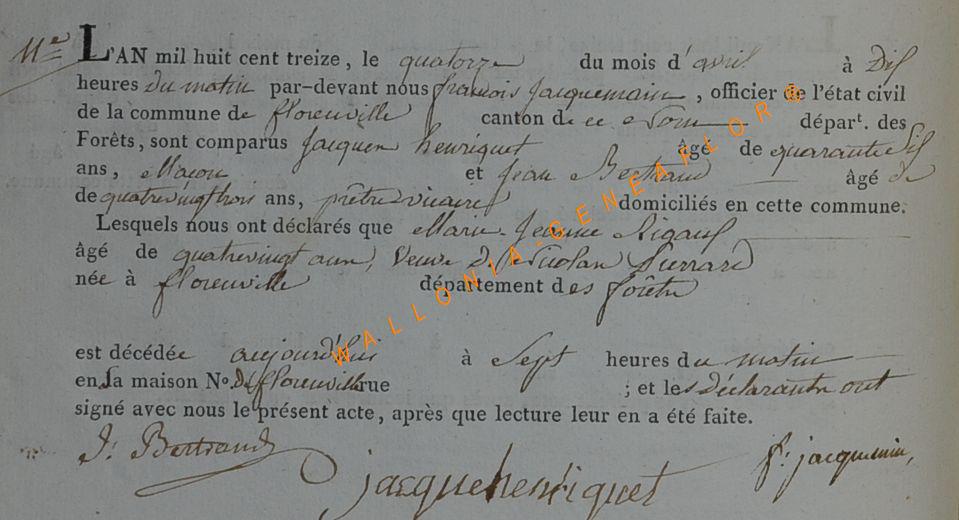 11e L'AN mil huit cent treize, le quatorze du mois d'avril à Dix
heures du matin par-devant nous françois Jacquemain, officier de l'état civil
de la commune de florenville canton de ce Nom départ. des
Forêts, sont comparus Jacques henriquet âgé de quarante Six
ans, Maçon et Jean Bertrand âgé de
de quatrevingt trois ans, prêtre vicaire domiciliés en cette commune.
Lesquels nous ont déclarés que Marie-Jeanne
âgé de quatrevingt ans, Veuve de Nicolas
née à florenville département des forêts
est décédée aujourd'hui à Sept heures du matin
en sa maison No. de florenville rue ; et les déclarants ont
signé avec nous le présent acte, après que lecture leur en a été faite.
J: Bertrand jacque henriquet f: jacquemin,
WALLONIA-GENEALOR